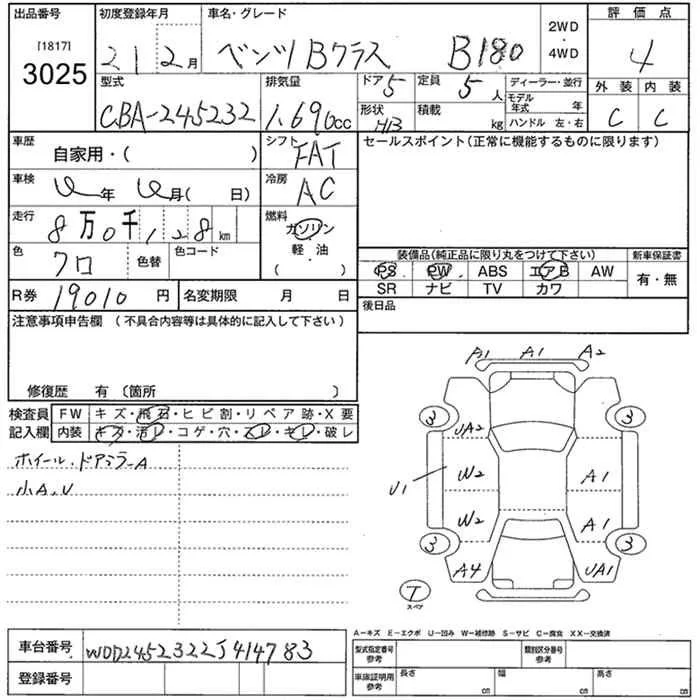 出品番号
[1817]
3025
初度登録年月
21 2月
車名・グレード
ベンツBクラス B180
2WD
4WD
評価点
4
外装 内装
C C
型式
CBA-245232
排気量
1.69 0cc
ドア 5
定員 5人
形状 HB
積載 kg
ディーラー・並行
モデル年式 年
ハンドル 左・右
車歴
自家用・( )
シフト
FAT
セールスポイント(正常に機能するものに限ります)
車検
年 月( 日)
冷房
AC
走行
8万0千128km
燃料
ガソリン
軽・油
( )
色
クロ
色替
色コード
装備品(純正品に限り丸をつけて下さい)
新車保証書
PS PW ABS エアB AW
SR ナビ TV カワ
有・無
R券 19010円
名変期限 月 日
後日品
注意事項申告欄(不具合内容等は具体的に記入して下さい)
修復歴 有〔箇所 〕
検査員記入欄
FW キズ・飛石・ヒビ割・リペア跡・X要
内装 キズ・汚レ・コゲ・穴・スレ・キレ・破レ
ホイール・ドアミラーA
小A、U
A1 A1 A2
3 3
UA2
W2 A1
U1
W2 A1
3 3
A4 UA1
T
スペア
A−キズ E−エクボ U−凹み W−補修跡 S−サビ C−腐食 XX−交換済
車台番号 WDD2452322J414783
登録番号
型式指定番号 参考
類別区分番号 参考
車庫証明用 参考
長さ cm
幅 cm
高さ cm